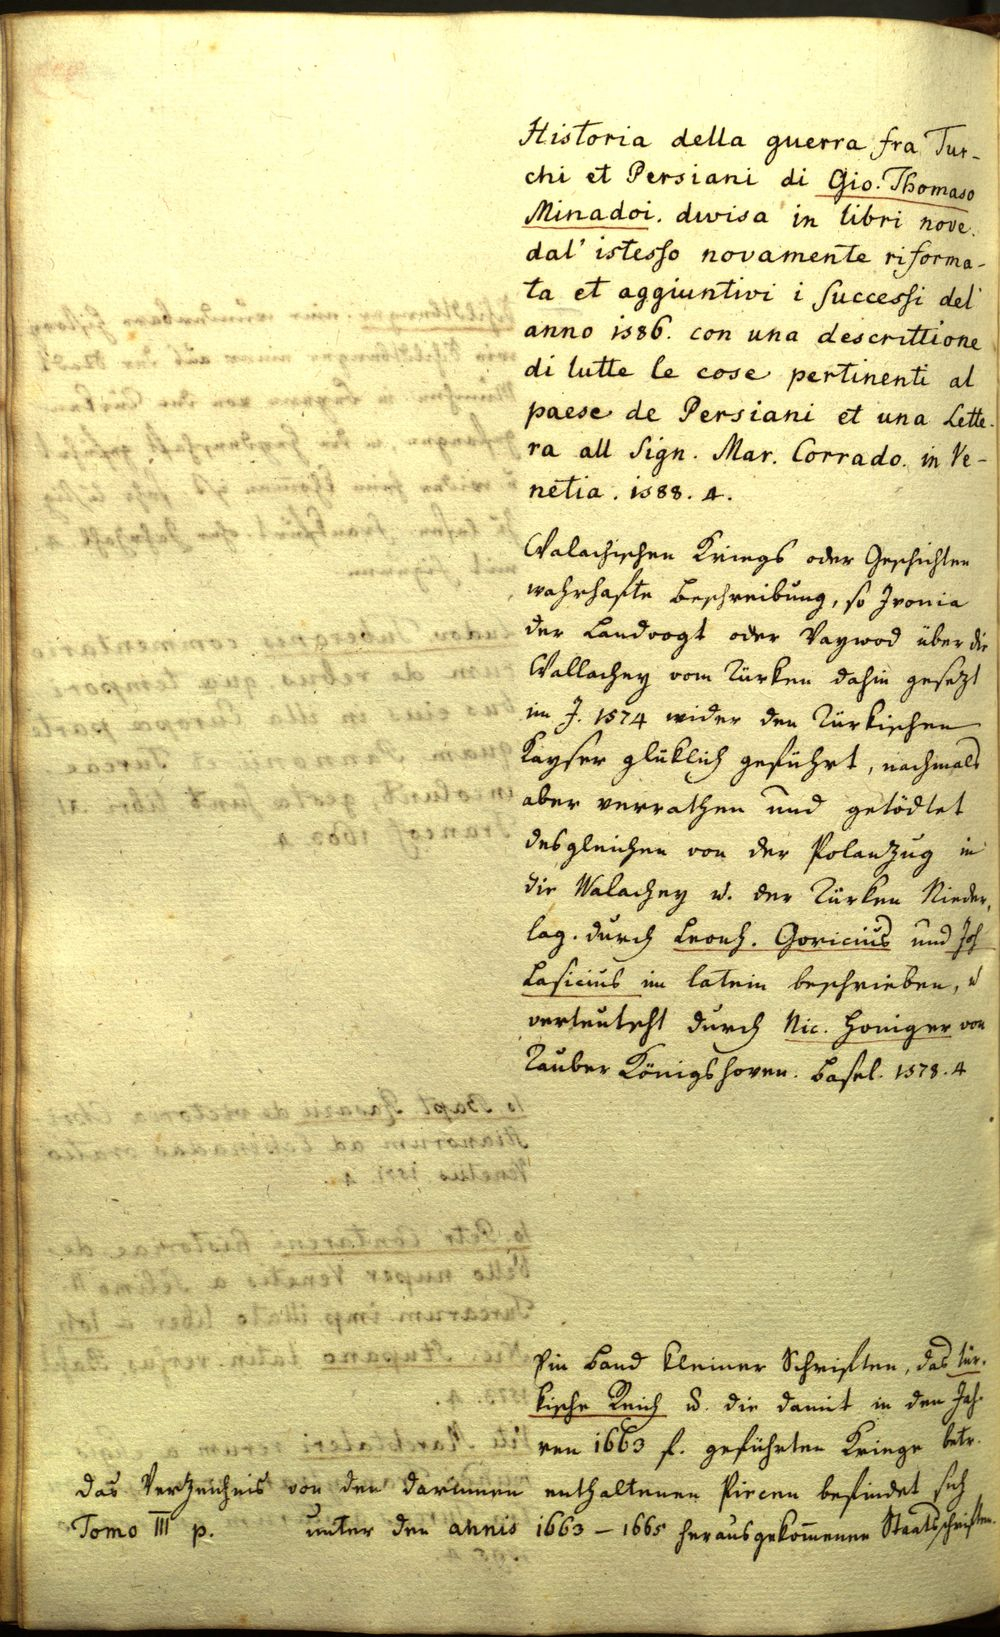 Historia della guerra fra Tur-
chi et Persiani di Gio. Thomaso
Minadoi. divisa in libri nove.
dal' istesso novamente riforma-
ta et aggiuntivi i successi del'
anno 1586. con una descrittione
di tutte le cose pertinenti al
paese de Persiani et una Lette-
ra all Sign. Mar. Corrado. in Ve-
netia. 1588. 4.
Walachischen Kriegs oder Geschichten
wahrhafte Beschreibung, so Ivonia
der Landvogt oder Vaywod über die
Wallachey vom Türken dahin gesetzt
im J. 1574 wider den Türkischen
Kayser glüklich geführt, nachmals
aber verrathen und getödtet
desgleichen von der Polan Zug in
die Walachey u. der Türken Nieder,
lag. durch Leonh. Goricius und Joh
Lasicius im latein beschrieben, u
verteutscht durch Nic. Honiger von
Tauber Königshoven. Basel. 1578. 4
Ein Band kleiner Schriften, das tür-
kische Reich u. die damit in den Jah-
ren 1663 f. geführten Kriege betr.
das Verzeichnis von den darinnen enthaltenen Piecen befindet sich
Tomo III p. unter den annis 1663 – 1665 herausgekom̅enen Staatsschriften.